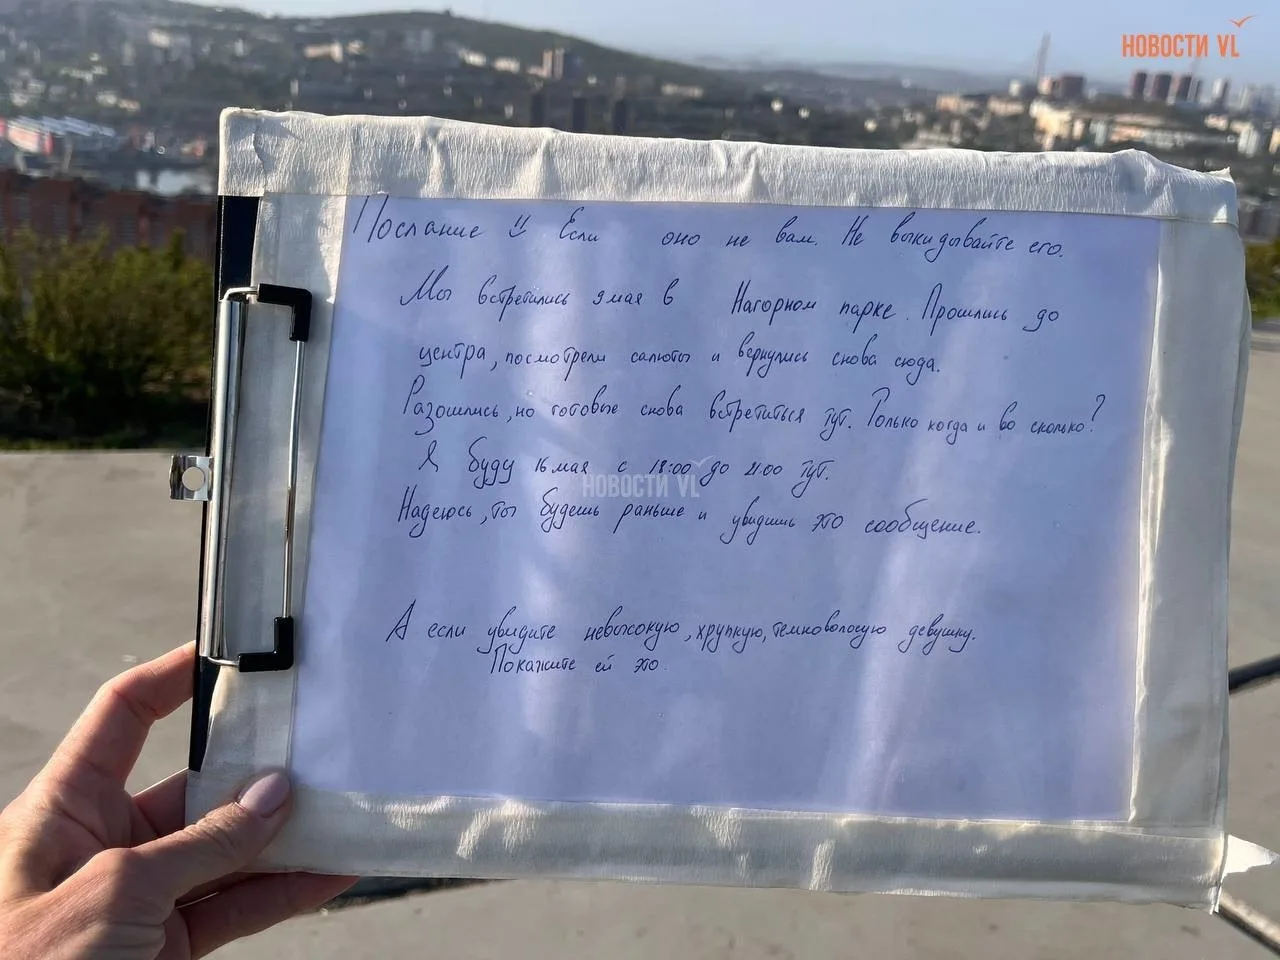 НОВОСТИ VL
Послание !! Если оно не вам. Не выкидывайте его.
Мы встретились 9 мая в Нагорном парке. Прошлись до
центра, посмотрели салюты и вернулись снова сюда.
Разошлись, но готовые снова встретиться тут. Только когда и во сколько?
Я буду 16 мая с 18:00 до 21:00 тут.
НОВОСТИ VL
Надеюсь, ты будешь раньше и увидишь это сообщение.
А если увидите невысокую, хрупкую, темноволосую девушку.
Покажите ей это.